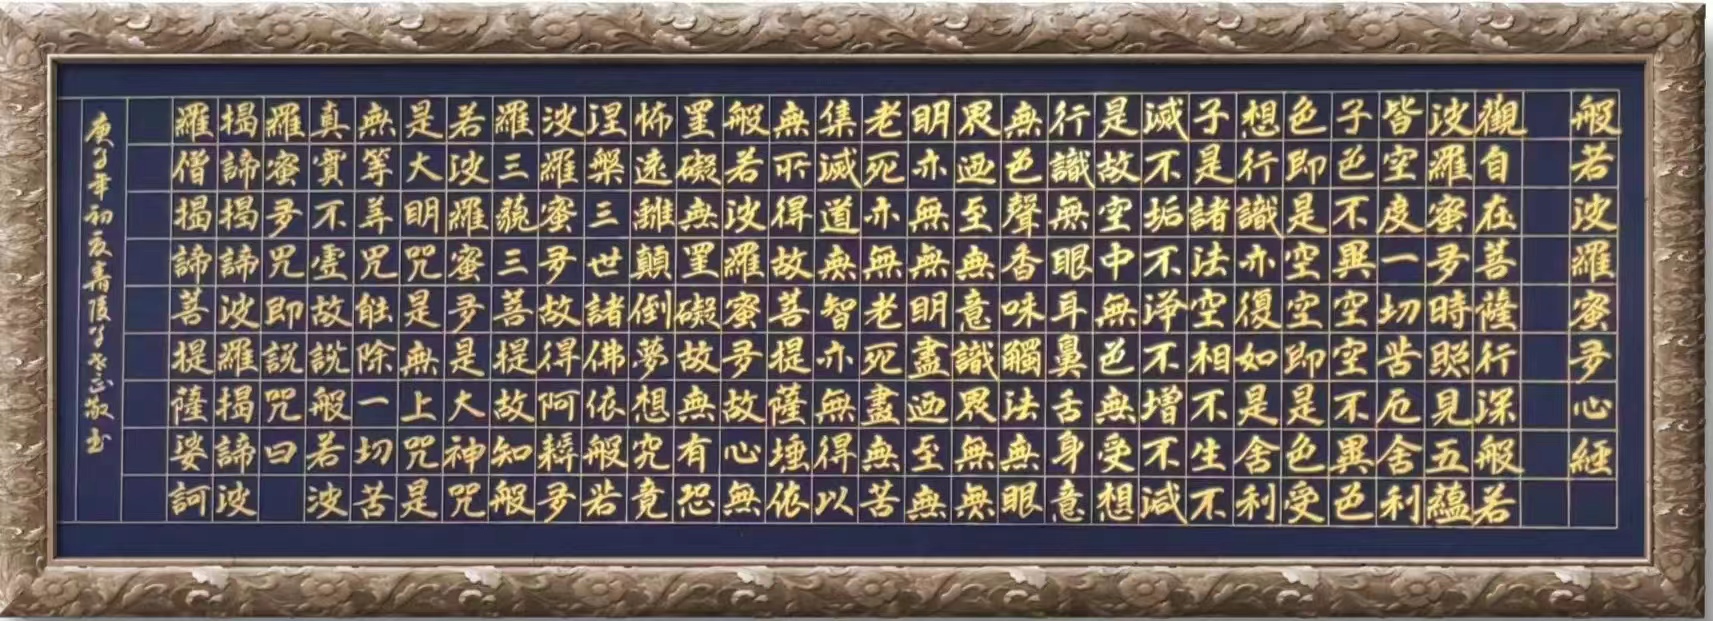 般若波羅蜜多心經
觀自在菩薩行深般若
波羅蜜多時照見五蘊
皆空度一切苦厄舍利
子色不異空空不異色
色即是空空即是色受
想行識亦復如是舍利
子是諸法空相不生不
滅不垢不淨不增不減
是故空中無色無受想
行識無眼耳鼻舌身意
無色聲香味觸法無眼
界迺至無意識界無無
明亦無無明盡迺至無
老死亦無老死盡無苦
集滅道無智亦無得以
無所得故菩提薩埵依
般若波羅蜜多故心無
罣礙無罣礙故無有恐
怖遠離顛倒夢想究竟
涅槃三世諸佛依般若
波羅蜜多故得阿耨多
羅三藐三菩提故知般
若波羅蜜多是大神咒
是大明咒是無上咒是
無等等咒能除一切苦
真實不虛故說般若波
羅蜜多咒即說咒曰
揭諦揭諦波羅揭諦波
羅僧揭諦菩提薩婆訶
庚子年初夏壽陵子敬書